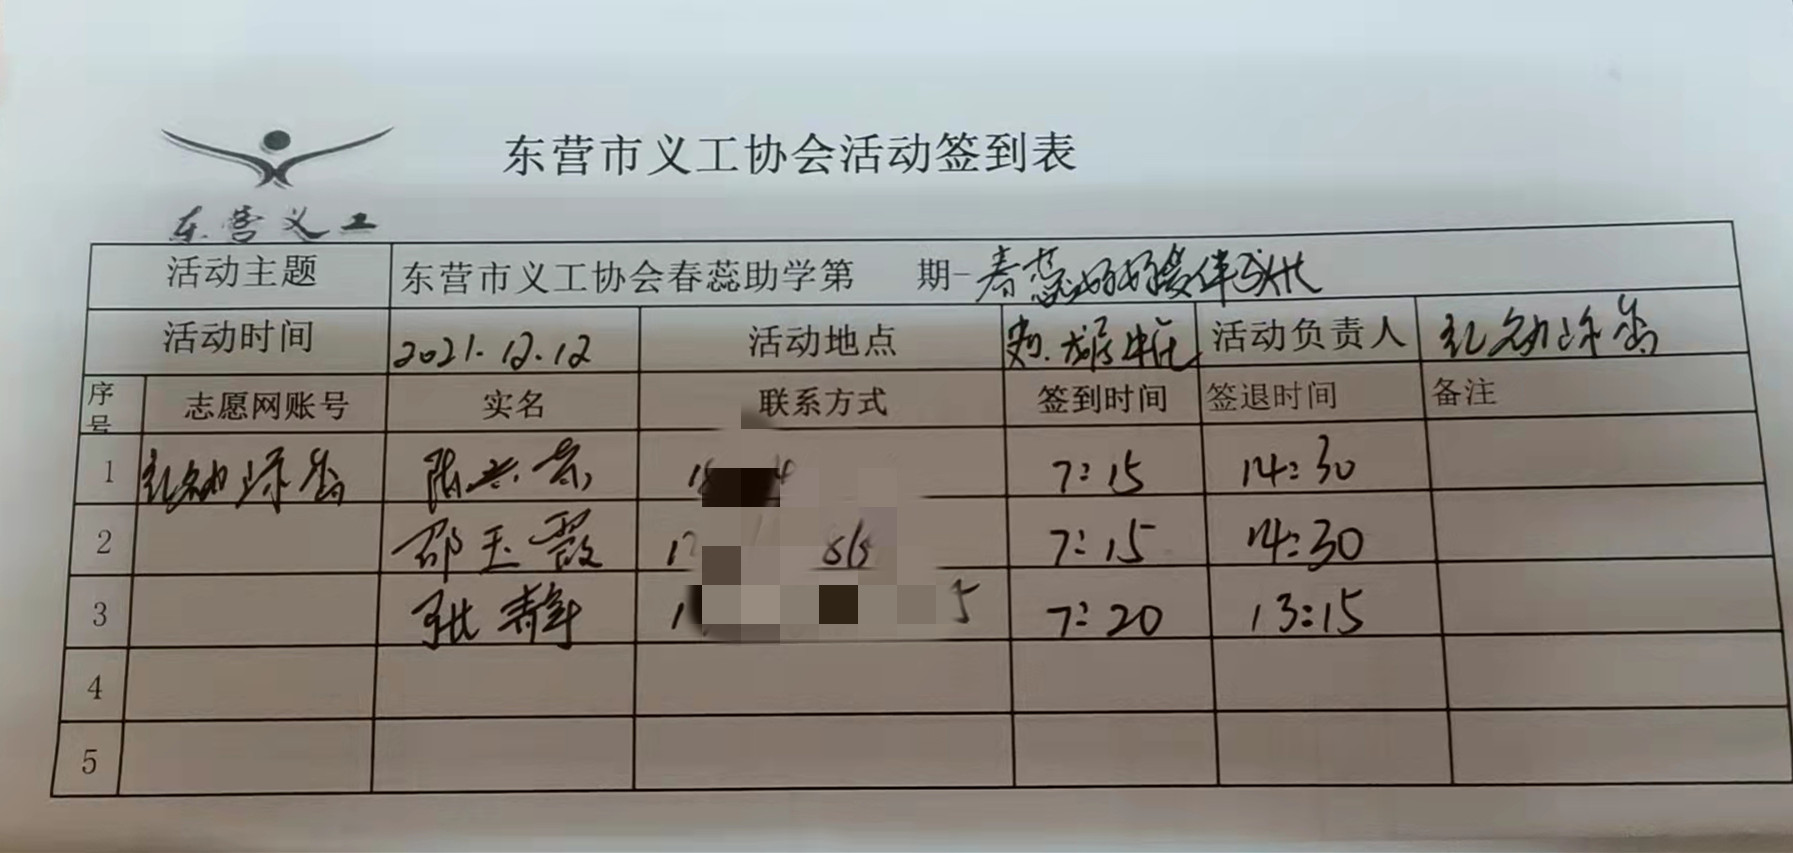 东营市义工协会活动签到表
东营义工
活动主题 东营市义工协会春蕊助学第 期-春蕊
活动时间 2021.12.12 活动地点 活动负责人
序号 志愿网账号 实名 联系方式 签到时间 签退时间 备注
1 陈 7:15 14:30
2 邵玉霞 7:15 14:30
3 张静 7:20 13:15
4
5